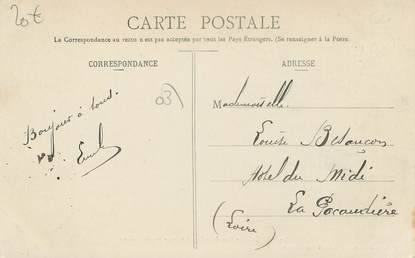 20€
CARTE POSTALE
La Correspondance au recto n'est pas acceptée par tous les Pays Étrangers. (Se renseigner à la Poste.
CORRESPONDANCE
ADRESSE
03)
Bonjour à tous.
Mademoiselle.
Louise Besançon
Hôtel du Midi
La Pacaudière
(Loire)